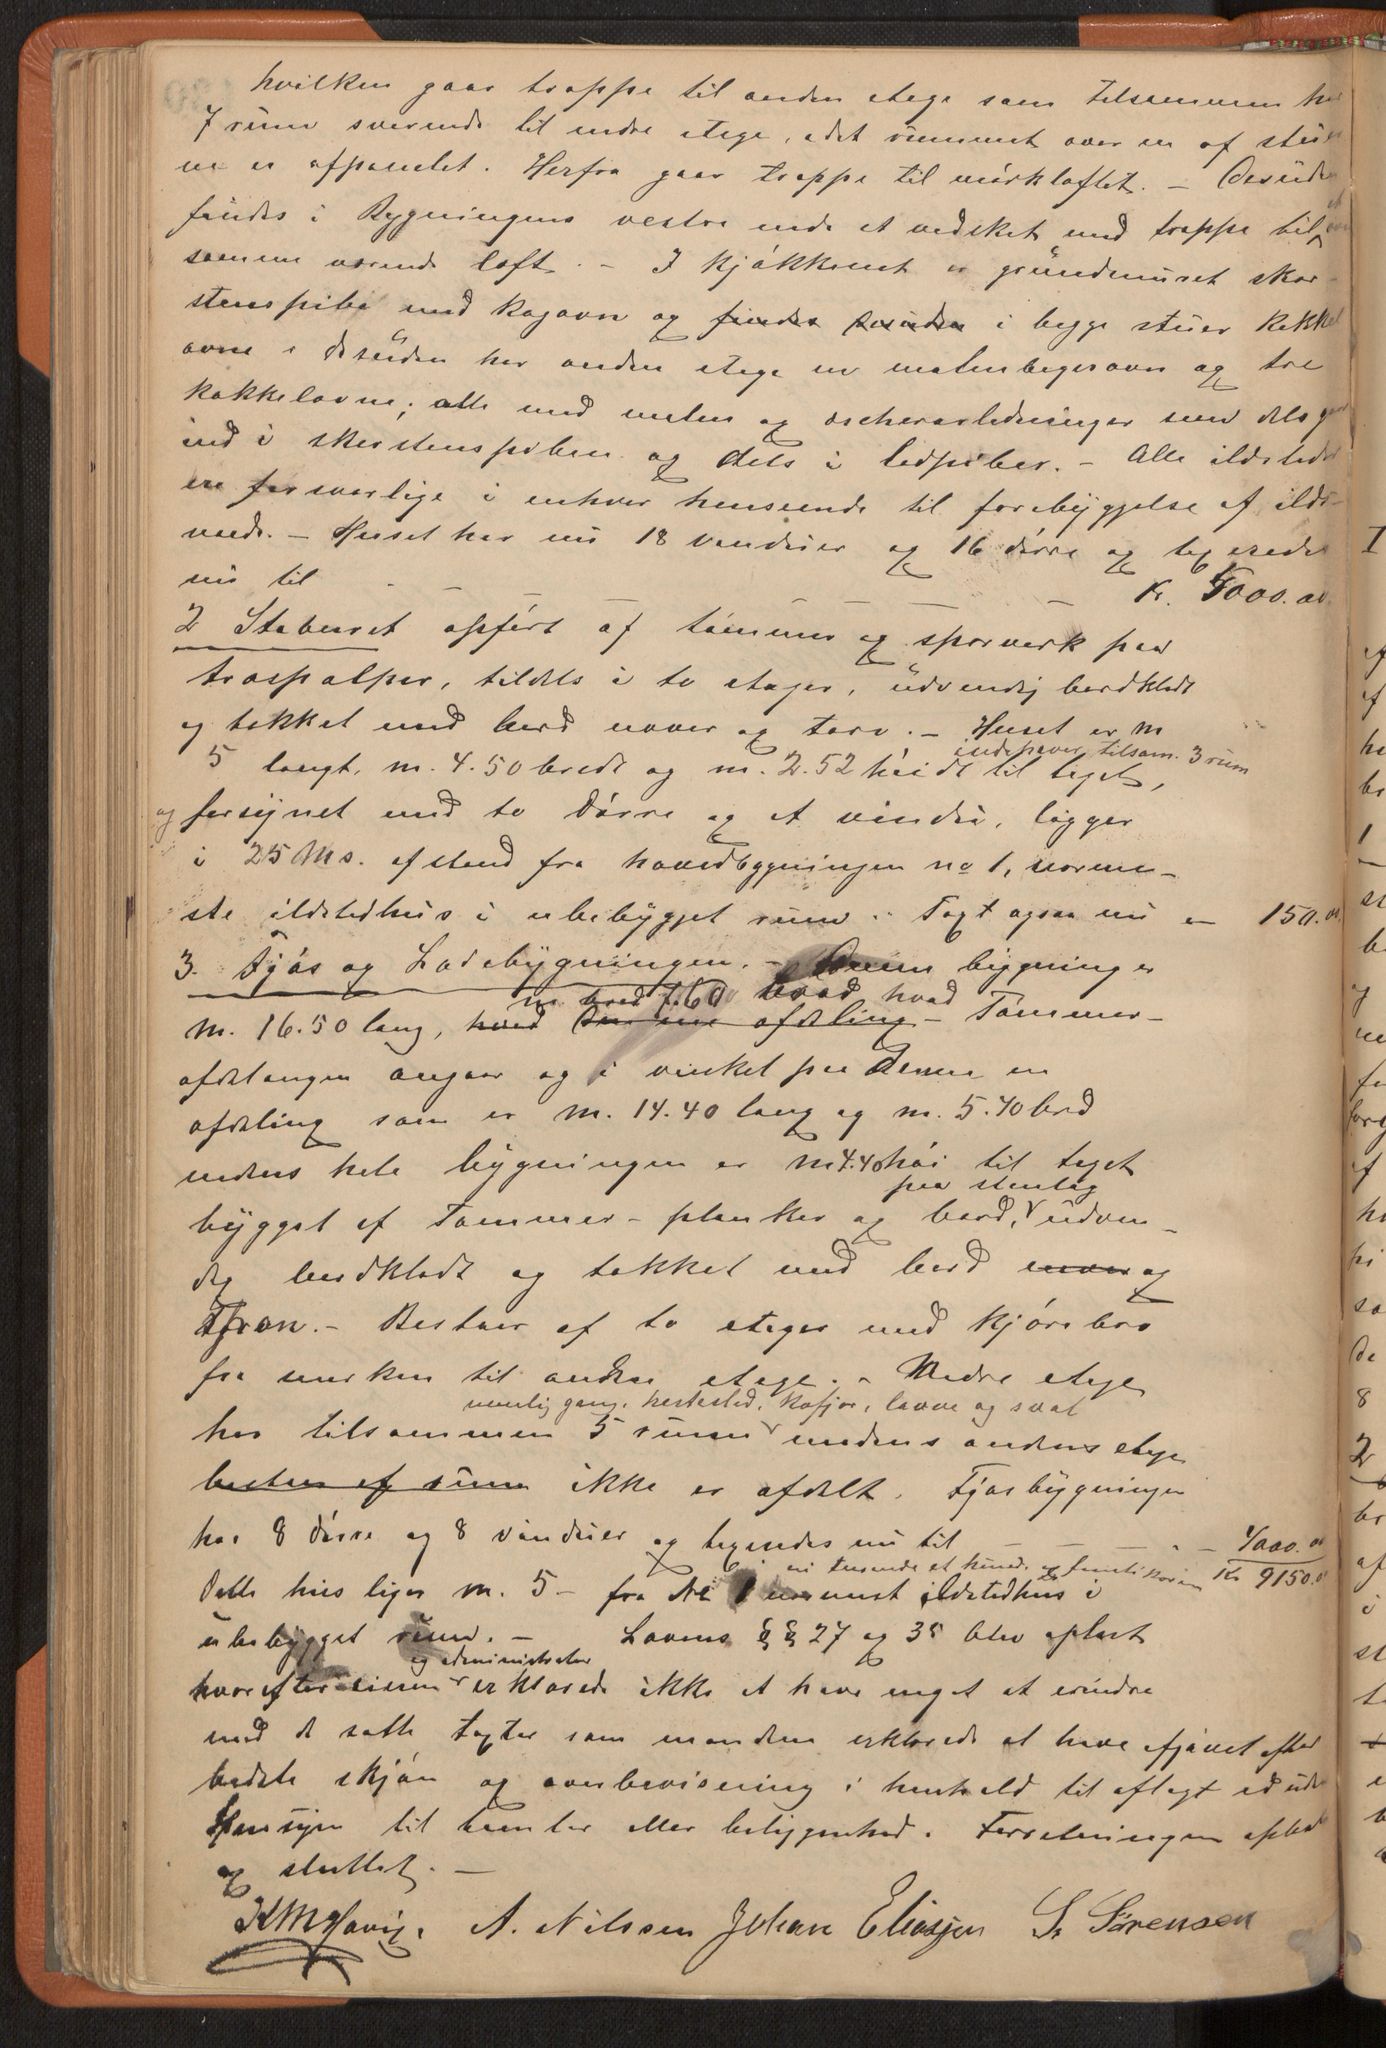 hvilken gaar trappe til anden etage som tilsammen har
7 rum svarende til nedre etage, idet rummet over en af stu
ne er afpanelet. Herfra gaar trappe til mørkloftet. – Desuden
findes i Bygningens vestre ende et vedskot med trappe til et over
samme værende loft. – I kjøkkenet er grundmuret skor-
stenspibe med kogovn og findes desuden i begge stuer kakkel
ovne, desuden har anden etage en etagesovn og tre
kakkelovne; alle med ovnsledninger som dels gaar
ind i skorstenspiben og dels i ledpiber. – Alle ildsteder
ere forsvarlige i enhver henseende til forebyggelse af ilds-
vaade. – Huset har nu 18 vinduer og 16 dørre og taxeredes
nu til – – – – – – Kr. 5000.00
2 Staburet opført af tømmer og sporverk paa
træstolper, tildels i to etager, udvendig bordklædt
og tækket med bord næver og torv. – Huset er m
indehaver tilsam. 3 rum
5 langt, m. 4.50 bredt og m. 2.52 høidt til taget,
og forsynet med to Dørre og et vindu, ligger
i 25 Ms. afstand fra hovedbygningen no 1, nærme-
ste ildstedhus i ubebygget rum. Taxt ogsaa nu – 150.00
3. Fjøs og Ladebygningen. – Denne bygning er
m bred 7.60 hvad
m. 16.50 lang, hvad afdeling – Tømmer-
afdelingen angaar og i vinkel paa Denne en
afdeling som er m. 14.40 lang og m. 5.40 bred
medens hele bygningen er m 4.40 høi til taget
paa stenlag
bygget af Tømmer – planker og bord, udven-
dig bordklædt og tækket med bord næver og
– Bestaar af to etager med Kjørebro
fra marken til anden etage. – Nedre etage
nemlig gang, hestested, kofjøs, lavve og sval
har tilsammen 5 rum medens andens etage
bestaar af rum ikke er afdelt. Fjøsbygningen
har 8 dørre og 8 vinduer og taxeredes nu til – – – – 4000.00
ni tusende et hund. og femti kroner Kr 9150.00
Dette hus liger m. 5 – fra No 1 nærmest ildstedhus i
ubebygget rum. – Lovens §§ 27 og 35 blev oplæst
og administrator
hvorefter eieren erklærede ikke at have noget at erindre
mod de satte taxter som mændene erklærede at have afgivet efter
bedste skjøn og overbevisning i henhold til aflagt ed uden
Hensyn til tomter eller beliggenhed. Forretningen oplæst
og sluttet. –
A. Nilssen Johan Eliasjen S. Sørensen